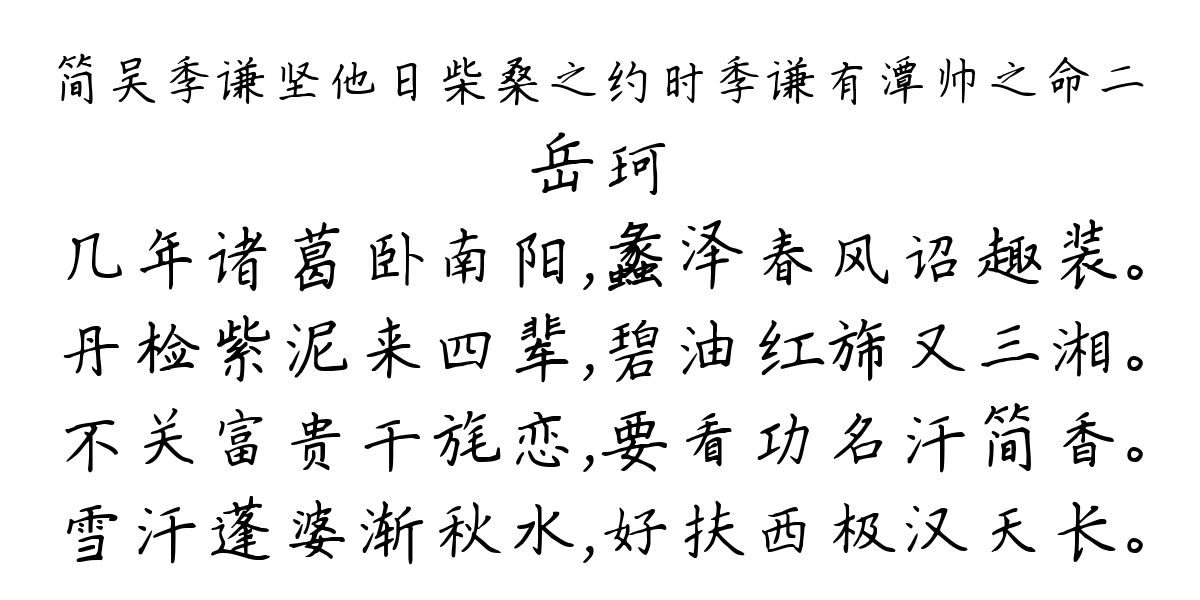 简吴季谦坚他日柴桑之约时季谦有潭帅之命二
岳珂
几年诸葛卧南阳,蠡泽春风诏趣装。
丹检紫泥来四辈,碧油红旆又三湘。
不关富贵干旄恋,要看功名汗简香。
雪汗蓬婆渐秋水,好扶西极汉天长。